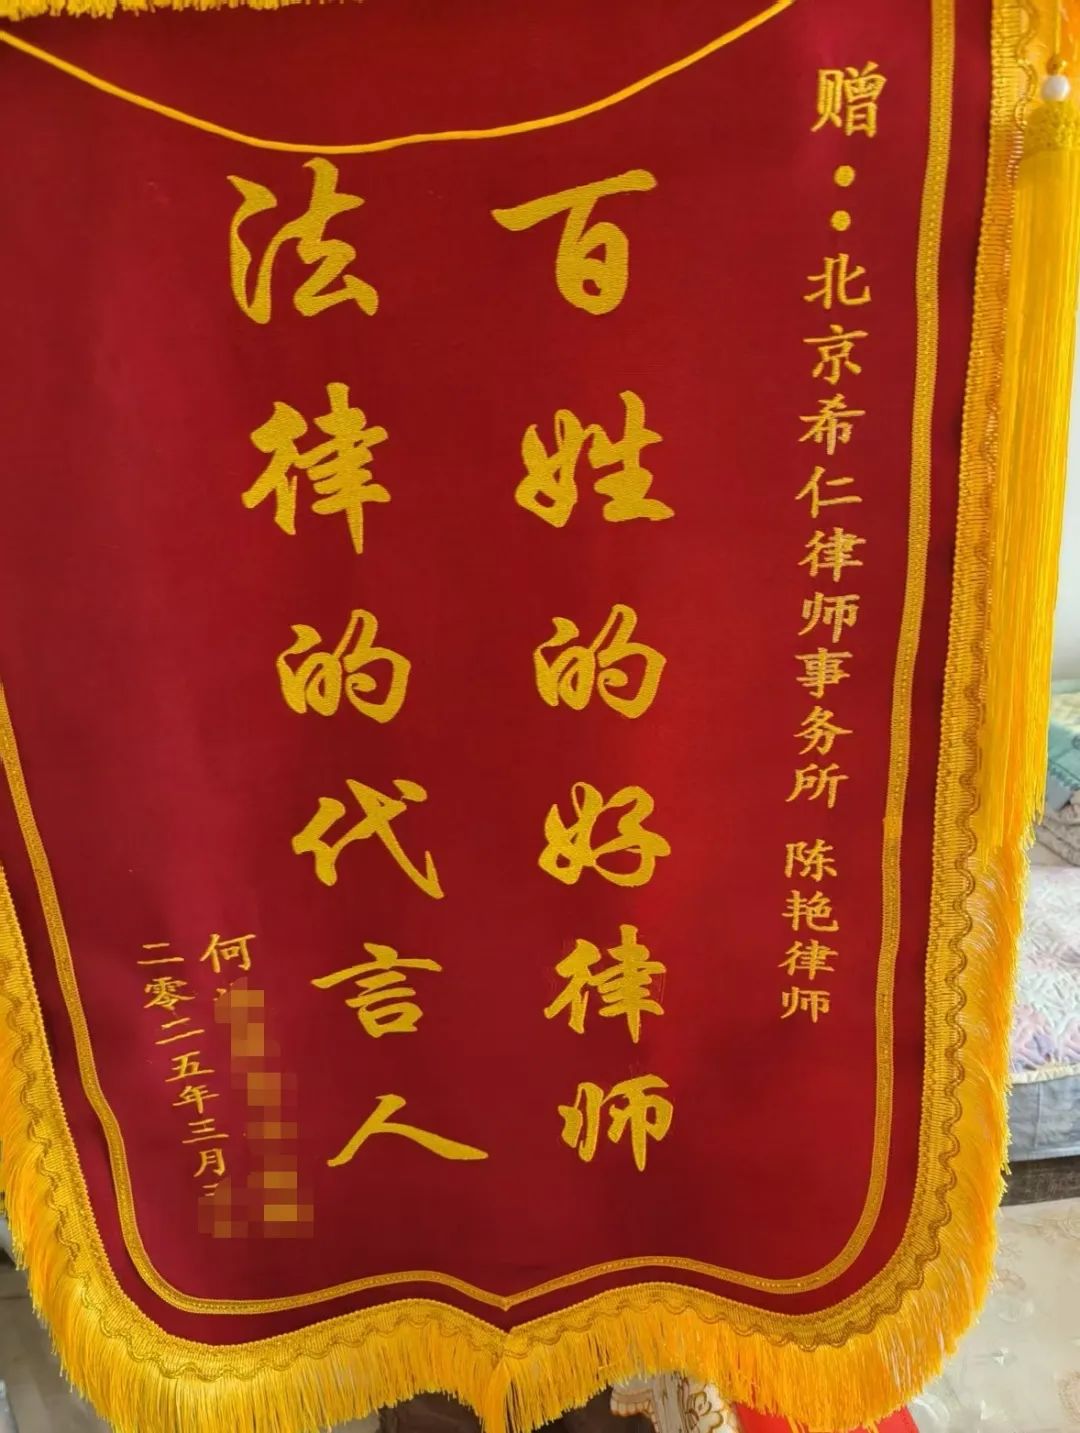 赠：北京希仁律师事务所 陈艳律师
百姓的好律师
法律的代言人
何
二零二五年三月